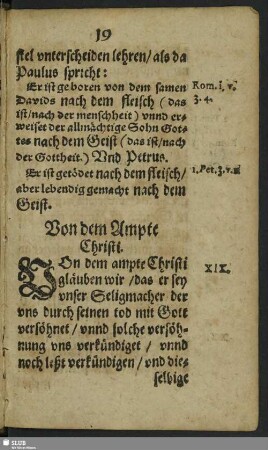 19
stel vnterscheiden lehren/als da
Paulus spricht:
Er ist geboren von dem samen
Rom. i, v.
Davids nach dem fleisch (das
3. 4.
ist/nach der menschheit) vnnd er-
weiset der allmächtige Sohn Got-
tes nach dem Geist (das ist/nach
der Gottheit.) Vnd Petrus.
Er ist getödet nach dem fleisch/
aber lebendig gemacht nach dem
Geist.
Von dem Ampte
Christi.
VOn dem ampte Christi
XIX.
gläuben wir/das er sey
vnser Seligmacher der
vns durch seinen tod mit Gott
versöhnet/vnnd solche versöh-
nung vns verkündiget/vnnd
noch leßt verkündigen/vnd die-
selbige
SLUB